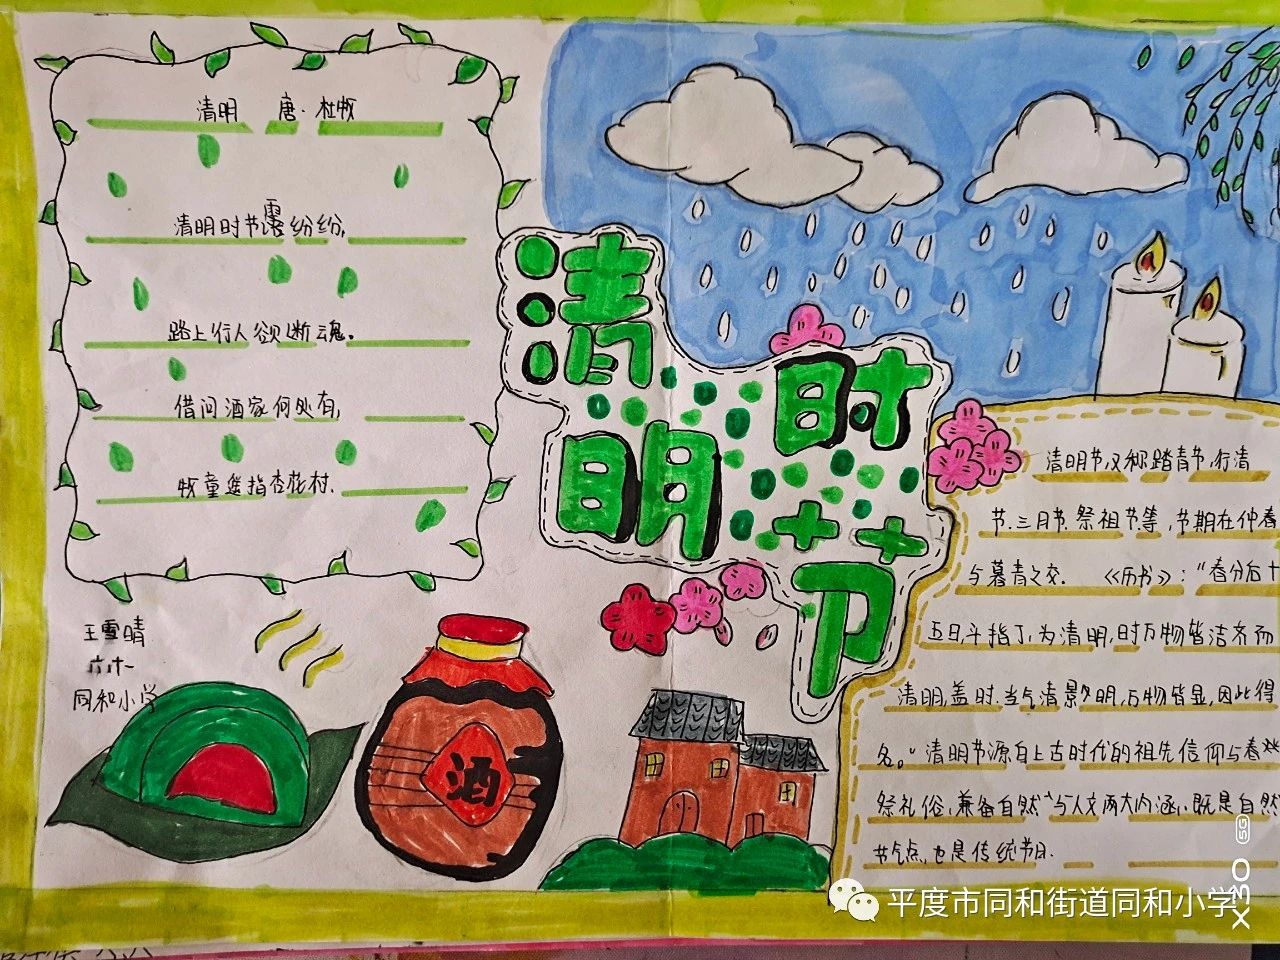 清明 唐·杜牧
清明时节雨纷纷,
路上行人欲断魂。
借问酒家何处有,
牧童遥指杏花村.
王雪晴
六十一
同和小学
清明时节
酒
清明节,又称踏青节,行清
节.三月节.祭祖节等,节期在仲春
与暮春之交. 《历书》:"春分后十
五日,斗指丁,为清明,时万物皆洁齐而
清明,盖时.当气清景明,万物皆显,因此得
名。"清明节源自上古时代的祖先信仰与春
祭礼俗,兼备自然与人文两大内涵,既是自然
节气点,也是传统节日.
平度市同和街道同和小学
X30 5G